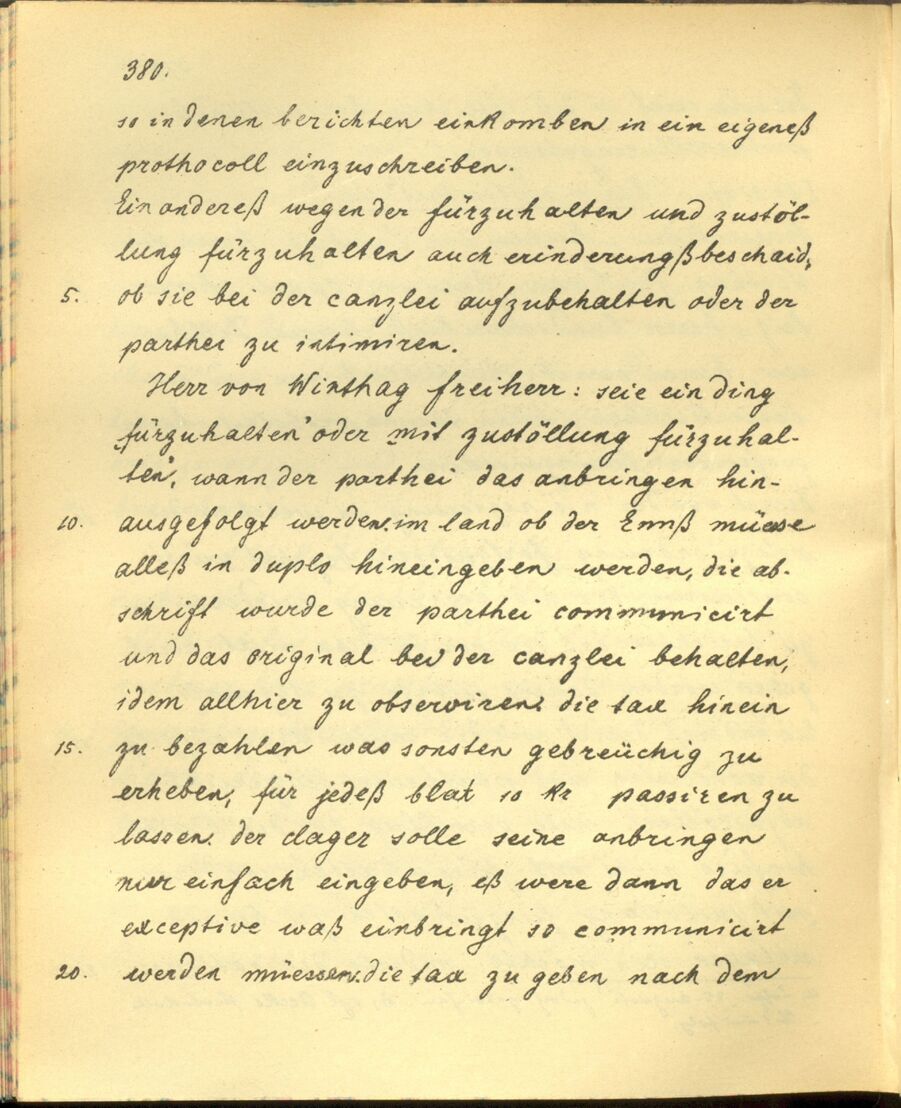 380.
so in denen berichten einkomben in ein eigeneß
prothocoll einzuschreiben.
Ein andereß wegen der fürzuhalten und zustöl-
lung fürzuhalten auch erinderungßbeschaid,
5. ob sie bei der canzlei aufzubehalten oder der
parthei zu intimiren.
Herr von Winthag freiherr: seie ein ding
„fürzuhalten" oder „mit zustöllung fürzuhal-
ten", wann der parthei das anbringen hin-
10. ausgefolgt werden. im land ob der Ennß müese
alleß in duplo hineingeben werden, die ab-
schrift wurde der parthei communicirt
und das original bei der canzlei behalten,
idem allhier zu observiren. die tax hinein
15. zu bezahlen was sonsten gebreüchig zu
erheben, für jedeß blat 10 kr passiren zu
lassen. der clager solle seine anbringen
nur einfach eingeben, eß were dann das er
exceptive waß einbringt so communicirt
20. werden müessen. die tax zu geben nach dem